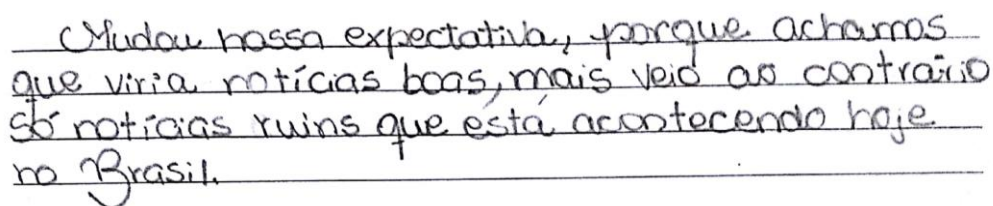 Mudou nossa expectativa, porque achamos
que viria notícias boas, mais veio ao contrário
só notícias ruins que está acontecendo hoje
no Brasil.